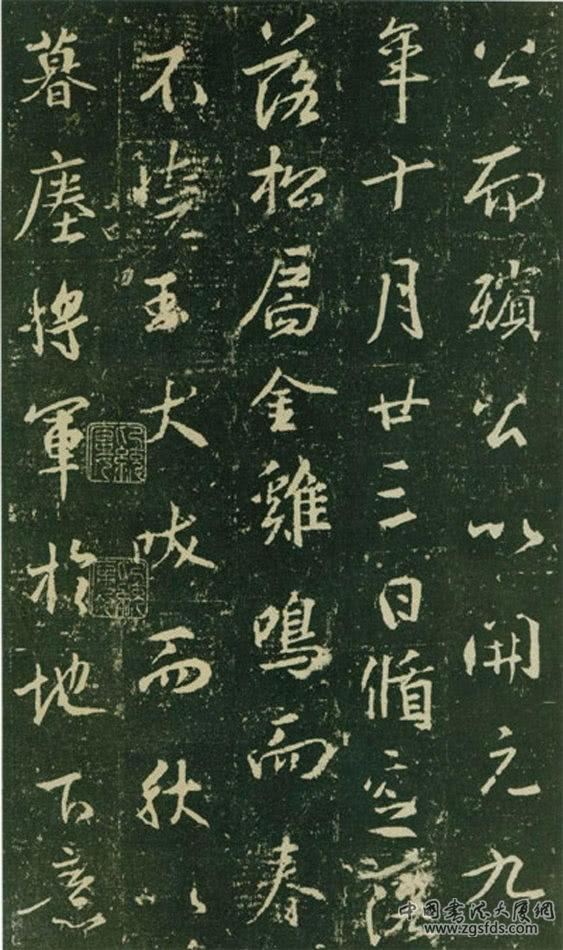 公而殯公以開元九
年十月廿三日循空
落松扃金雞鳴而春
不曉玉犬吠而秋以
暮將軍於地下意
中国书法大展网
www.zgsfds.com